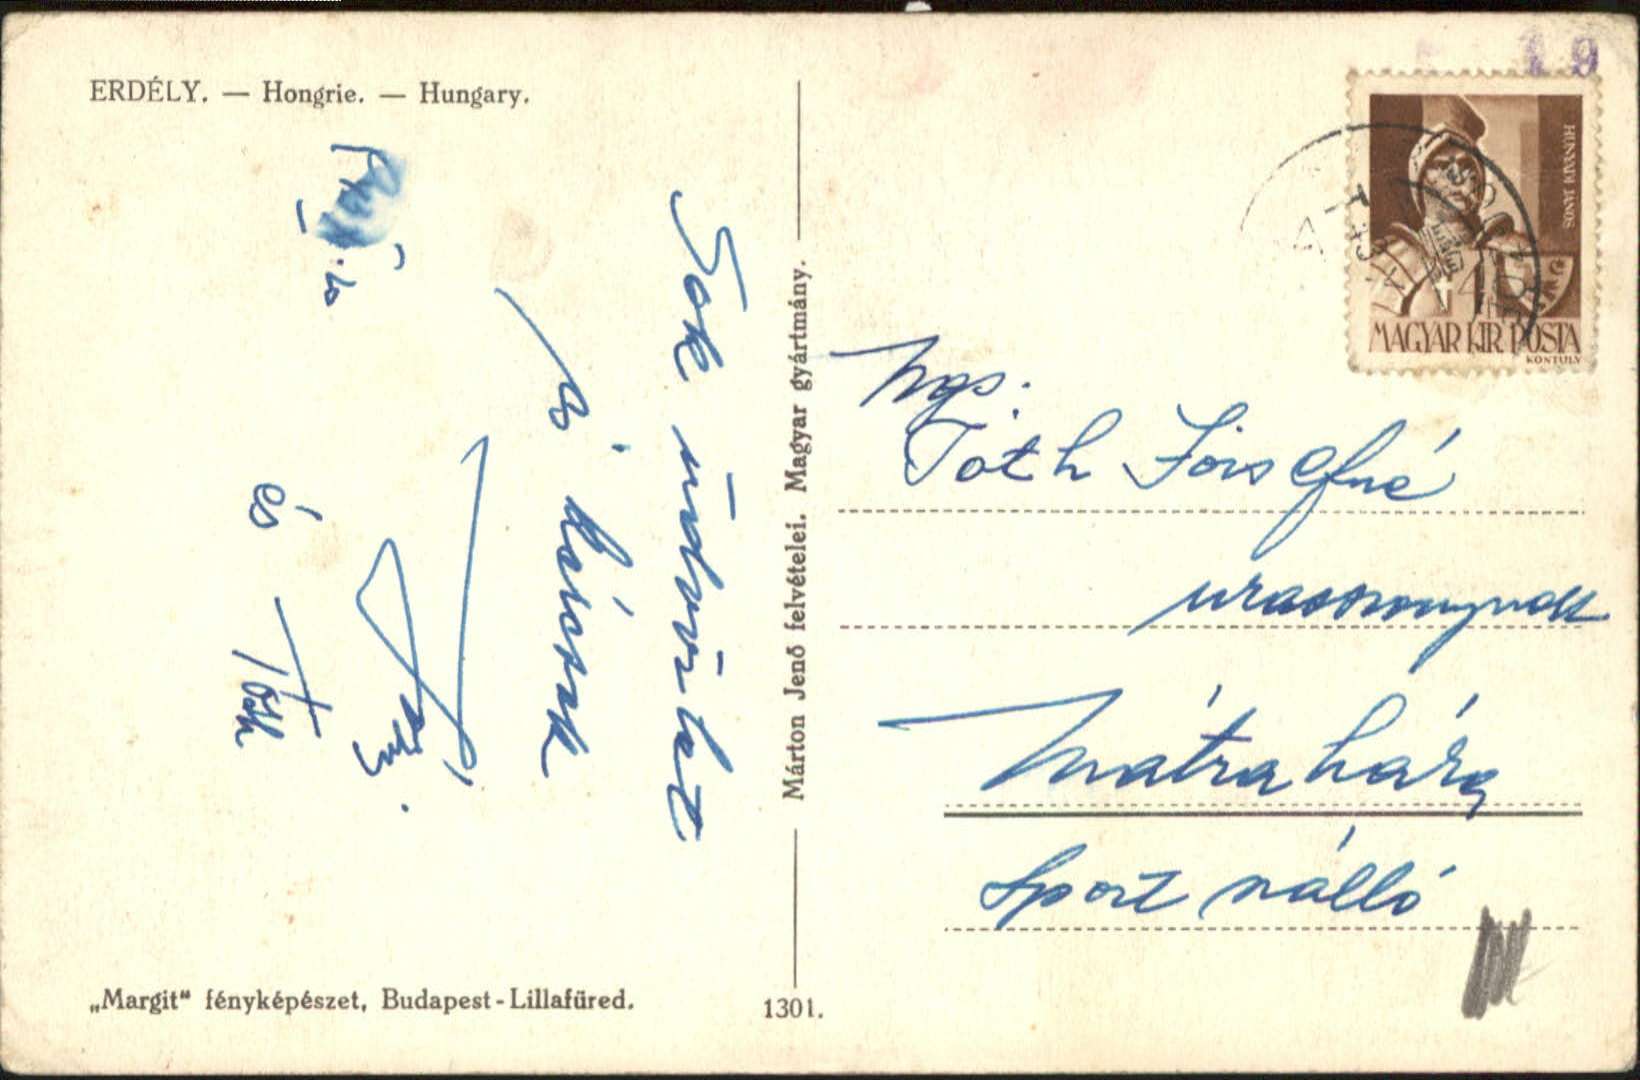 ERDÉLY. — Hongrie. — Hungary.
Sok üdvözlet
és
Tóth
„Margit“ fényképészet, Budapest-Lillafüred.
Márton Jenő felvételei. Magyar gyártmány.
1301.
19
HUNYADI JÁNOS
MAGYAR KIR. POSTA
KONTULY
Ngs.
Tóth Józsefné
urasszonynak
Mátraháza
Sport szálló